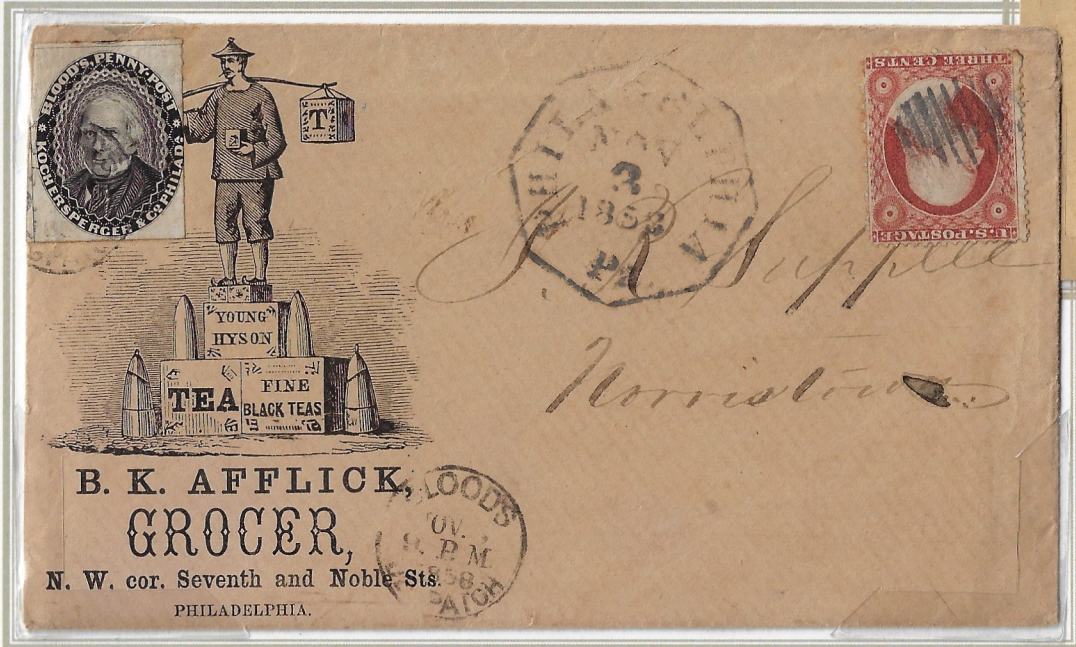 BLOOD'S, PENNY-POST
KOCHERSPERGER & CO. PHILADA.
T
YOUNG
HYSON
TEA
FINE
BLACK TEAS
B. K. AFFLICK,
GROCER,
N. W. cor. Seventh and Noble Sts.
PHILADELPHIA.
BLOOD'S
NOV.
P.M
1858
DISPATCH
PHILADELPHIA
NOV
3
1858
PA.
THREE CENTS
U.S. POSTAGE
R Supplee
Norristown